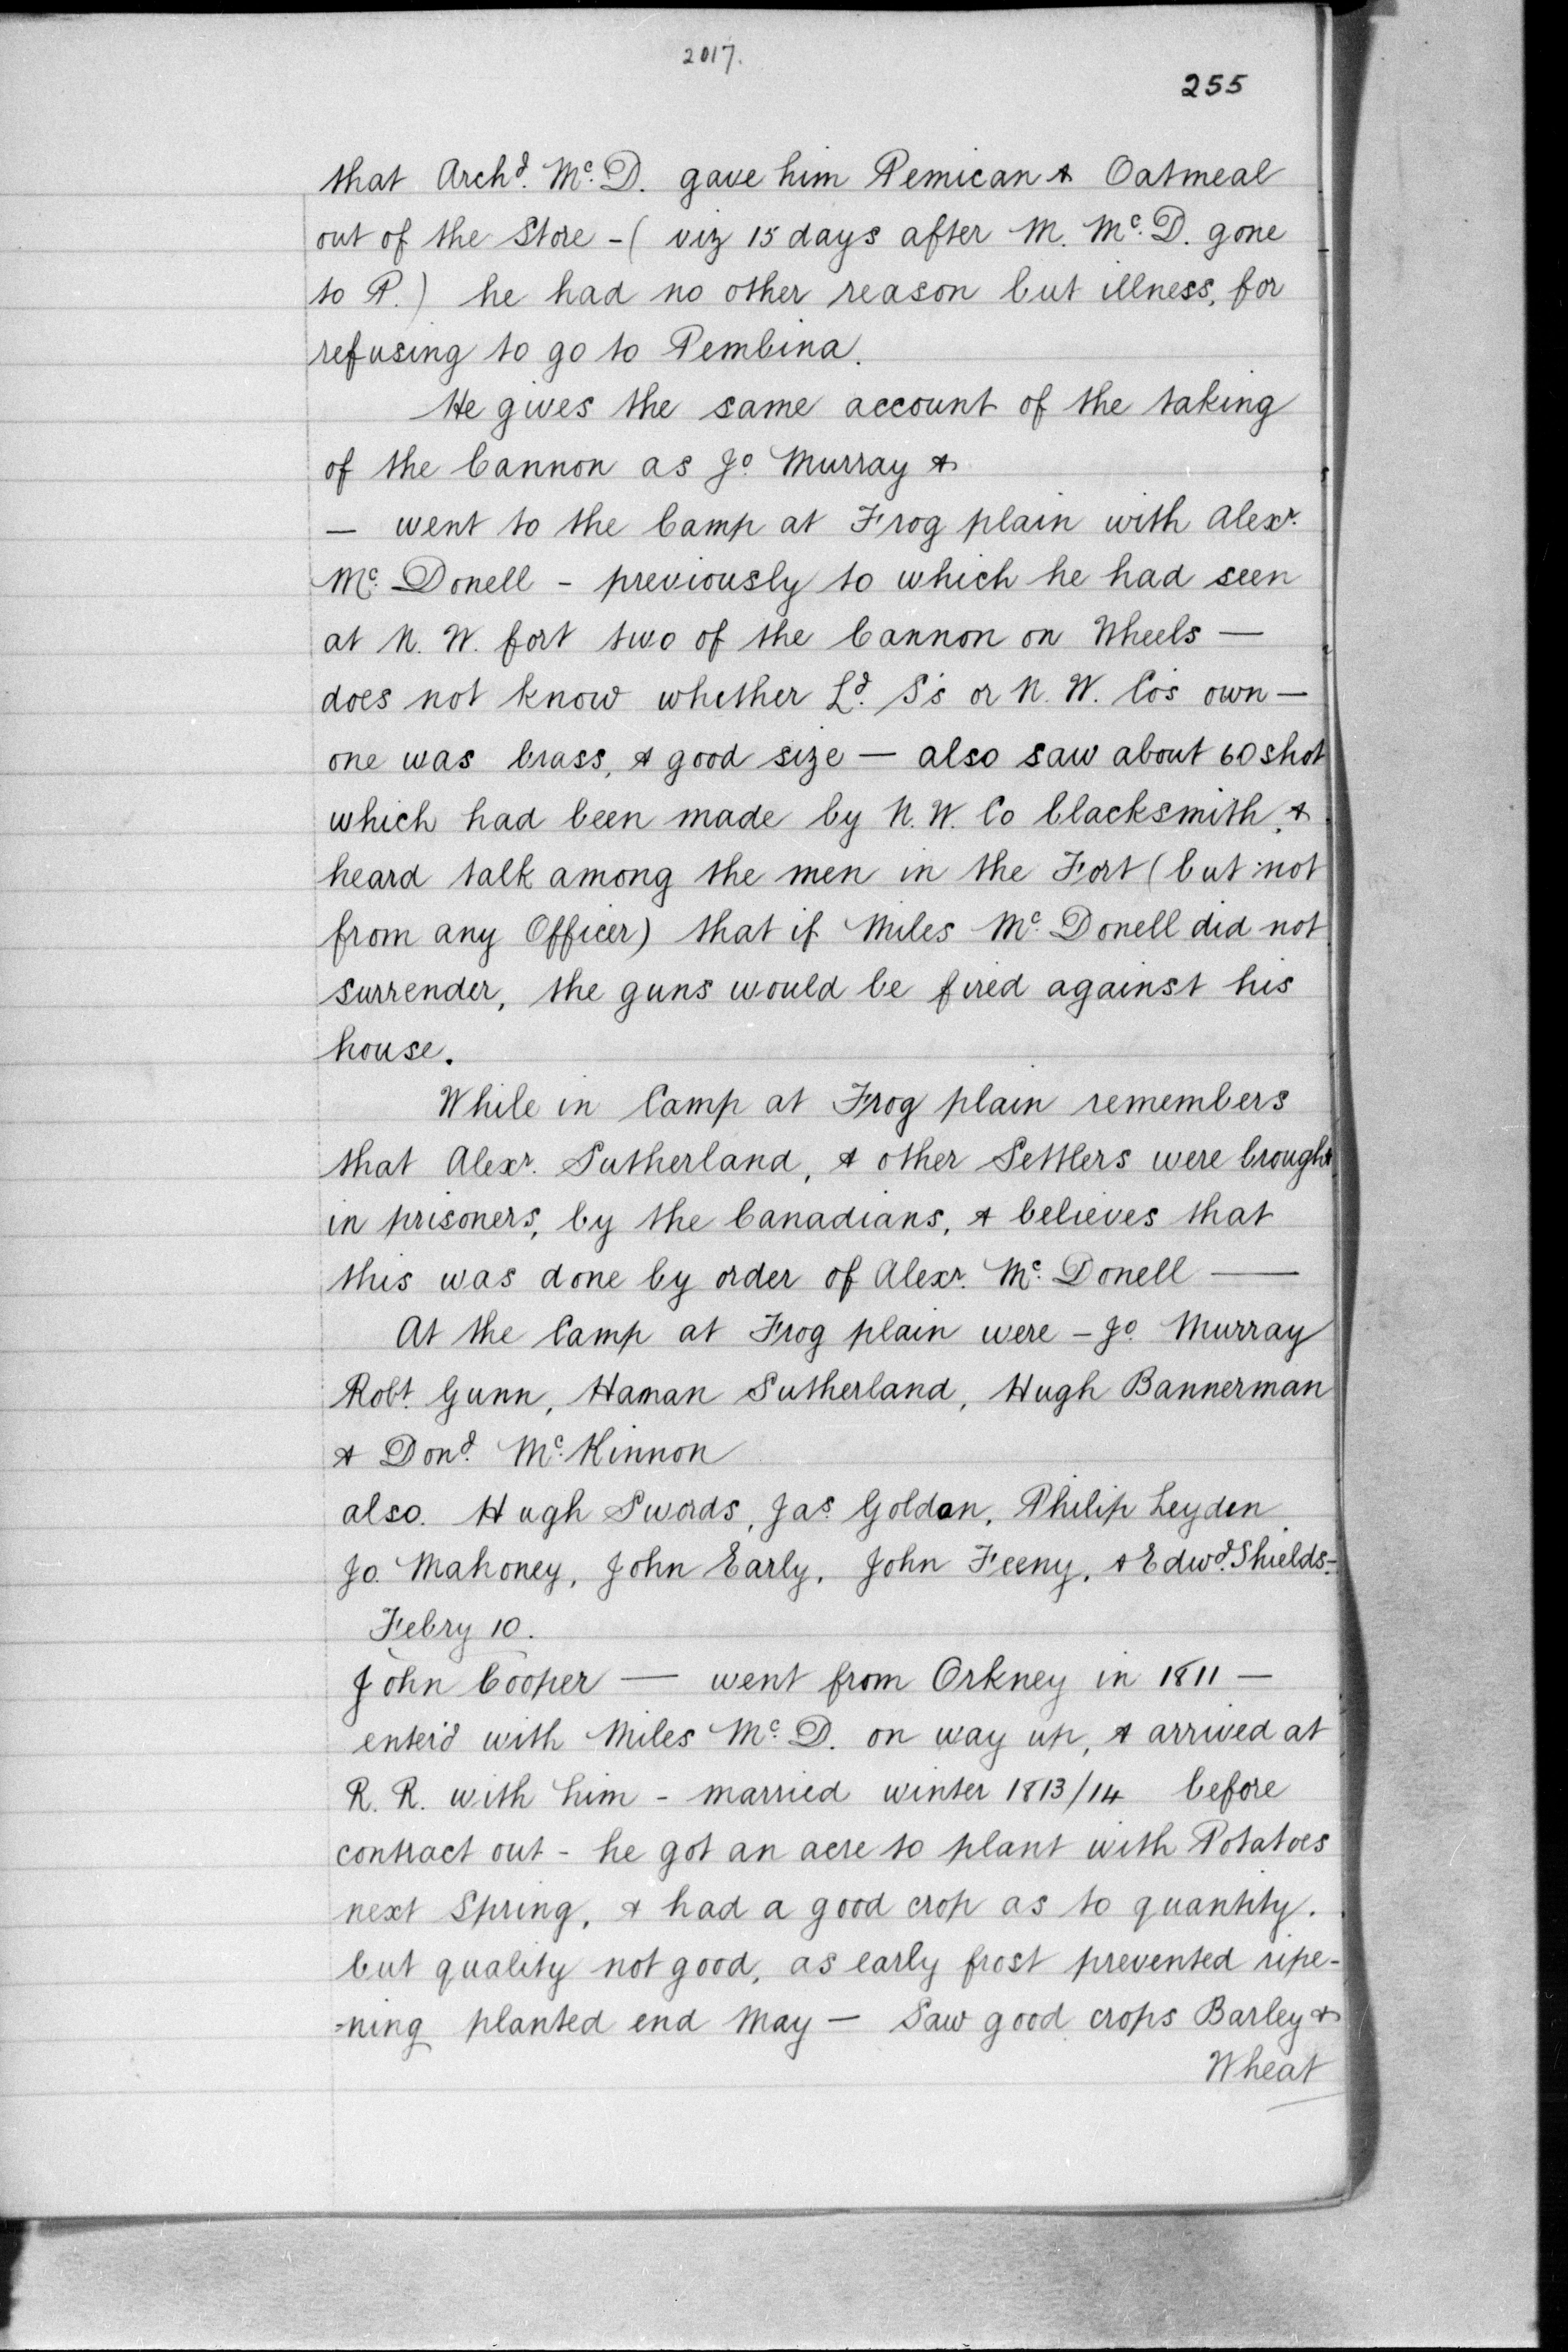 2017.
255
that Archd. Mc. D. gave him Pemican & Oatmeal
out of the Store - ( viz 15 days after M. Mc. D. gone
to P.) he had no other reason but illness, for
refusing to go to Pembina.
He gives the same account of the taking
of the Cannon as Jo Murray &
— went to the Camp at Frog plain with Alexr.
Mc. Donell - previously to which he had seen
at N. W. fort two of the Cannon on Wheels —
does not know whether Ld. S's or N. W. Co's own —
one was brass, & good size — also saw about 60 shot
which had been made by N. W. Co blacksmith, &
heard talk among the men in the Fort ( but not
from any Officer) that if Miles Mc. Donell did not
surrender, the guns would be fired against his
house.
While in Camp at Frog plain remembers
that Alexr. Sutherland, & other Settlers were brought
in prisoners, by the Canadians, & believes that
this was done by order of Alexr. Mc. Donell —
At the Camp at Frog plain were - Jo Murray
Robt. Gunn, Haman Sutherland, Hugh Bannerman
& Dond. Mc. Kinnon
also. Hugh Swords, Jas. Goldon, Philip Leyden
Jo. Mahoney, John Early, John Feeny, & Edwd. Shields -
Febry 10.
John Cooper — went from Orkney in 1811 —
enter'd with Miles Mc. D. on way up, & arrived at
R. R. with him - married winter 1813/14 before
contract out - he got an acre to plant with Potatoes
next Spring, & had a good crop as to quantity.
but quality not good, as early frost prevented ripe-
=ning planted end May — Saw good crops Barley &
Wheat